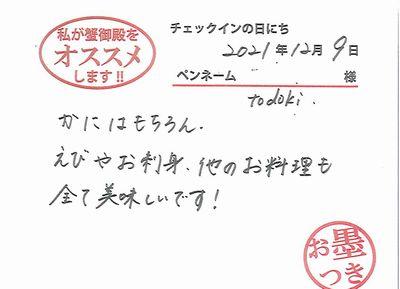 私が蟹御殿を
オススメ
します!!
チェックインの日にち
2021年12月9日
ペンネーム 様
todoki.
かにはもちろん、
えびやお刺身、他のお料理も
全て美味しいです!
お墨
つき